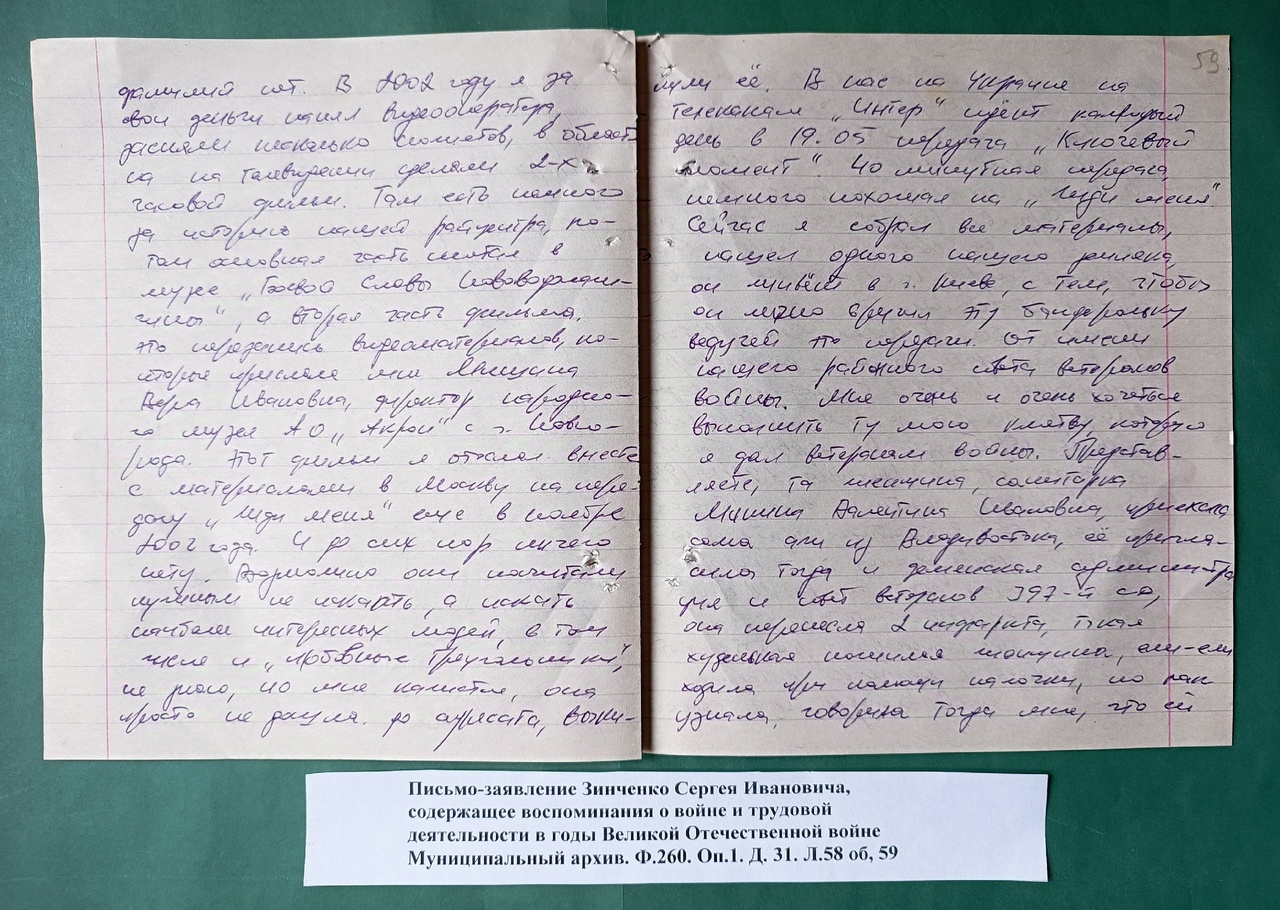 фамилий нет. В 2002 году я за
свои деньги нанял видеооператора,
засняли несколько сюжетов, в област-
на на телевидении сделали 2-х
часовой фильм. Там есть немного
за историю нашей райцентра, по-
том основная часть снятая в
музее „Боевой Славы
", а вторая часть фильма,
это перезапись видеоматериалов, ко-
торые прислала мне Яншина
Вера Ивановна, директор народно-
го музея АО „Акрон" с г. Новго-
рода. Этот фильм я отослал вместе
с материалами в Москву на пере-
дачу „Жди меня" еще в ноябре
2002 года. И до сих пор ничего
нету. Возможно они посчитали
нужным не искать, а искать
наиболее интересных людей, в том
числе и „любовные треугольники",
не знаю, но мне кажется, она
просто не дошла до адресата, выки-
59
нули её. В нас на Украине на
телеканале „Интер" идёт каждый
день в 19.05 передача „Ключевой
момент". 40 минутная передача
немного похожая на „Жди меня"
Сейчас я собрал все материалы,
нашел одного нашего земляка,
он живёт в г. Киеве, с тем, чтобы
он лично вручил эту бандерольку
ведущей этой передачи. От имени
нашего районного совета ветеранов
войны. Мне очень и очень хочеться
выполнить ту мою клятву, которую
я дал ветеранам войны. Представ-
ляете, та женщина, санитарка
Минина Валентина Ивановна, приехала
сама аж из Владивостока, её пригла-
сила тогда и демянская администра
ция и совет ветеранов 397-й сд,
она перенесла 2 инфаркта, такая
худенькая пожилая женщина, еле-еле
ходила при помощи палочки, но как
узнала, говорила тогда мне, что ей
Письмо-заявление Зинченко Сергея Ивановича,
содержащее воспоминания о войне и трудовой
деятельности в годы Великой Отечественной войне
Муниципальный архив. Ф.260. Оп.1. Д. 31. Л.58 об, 59